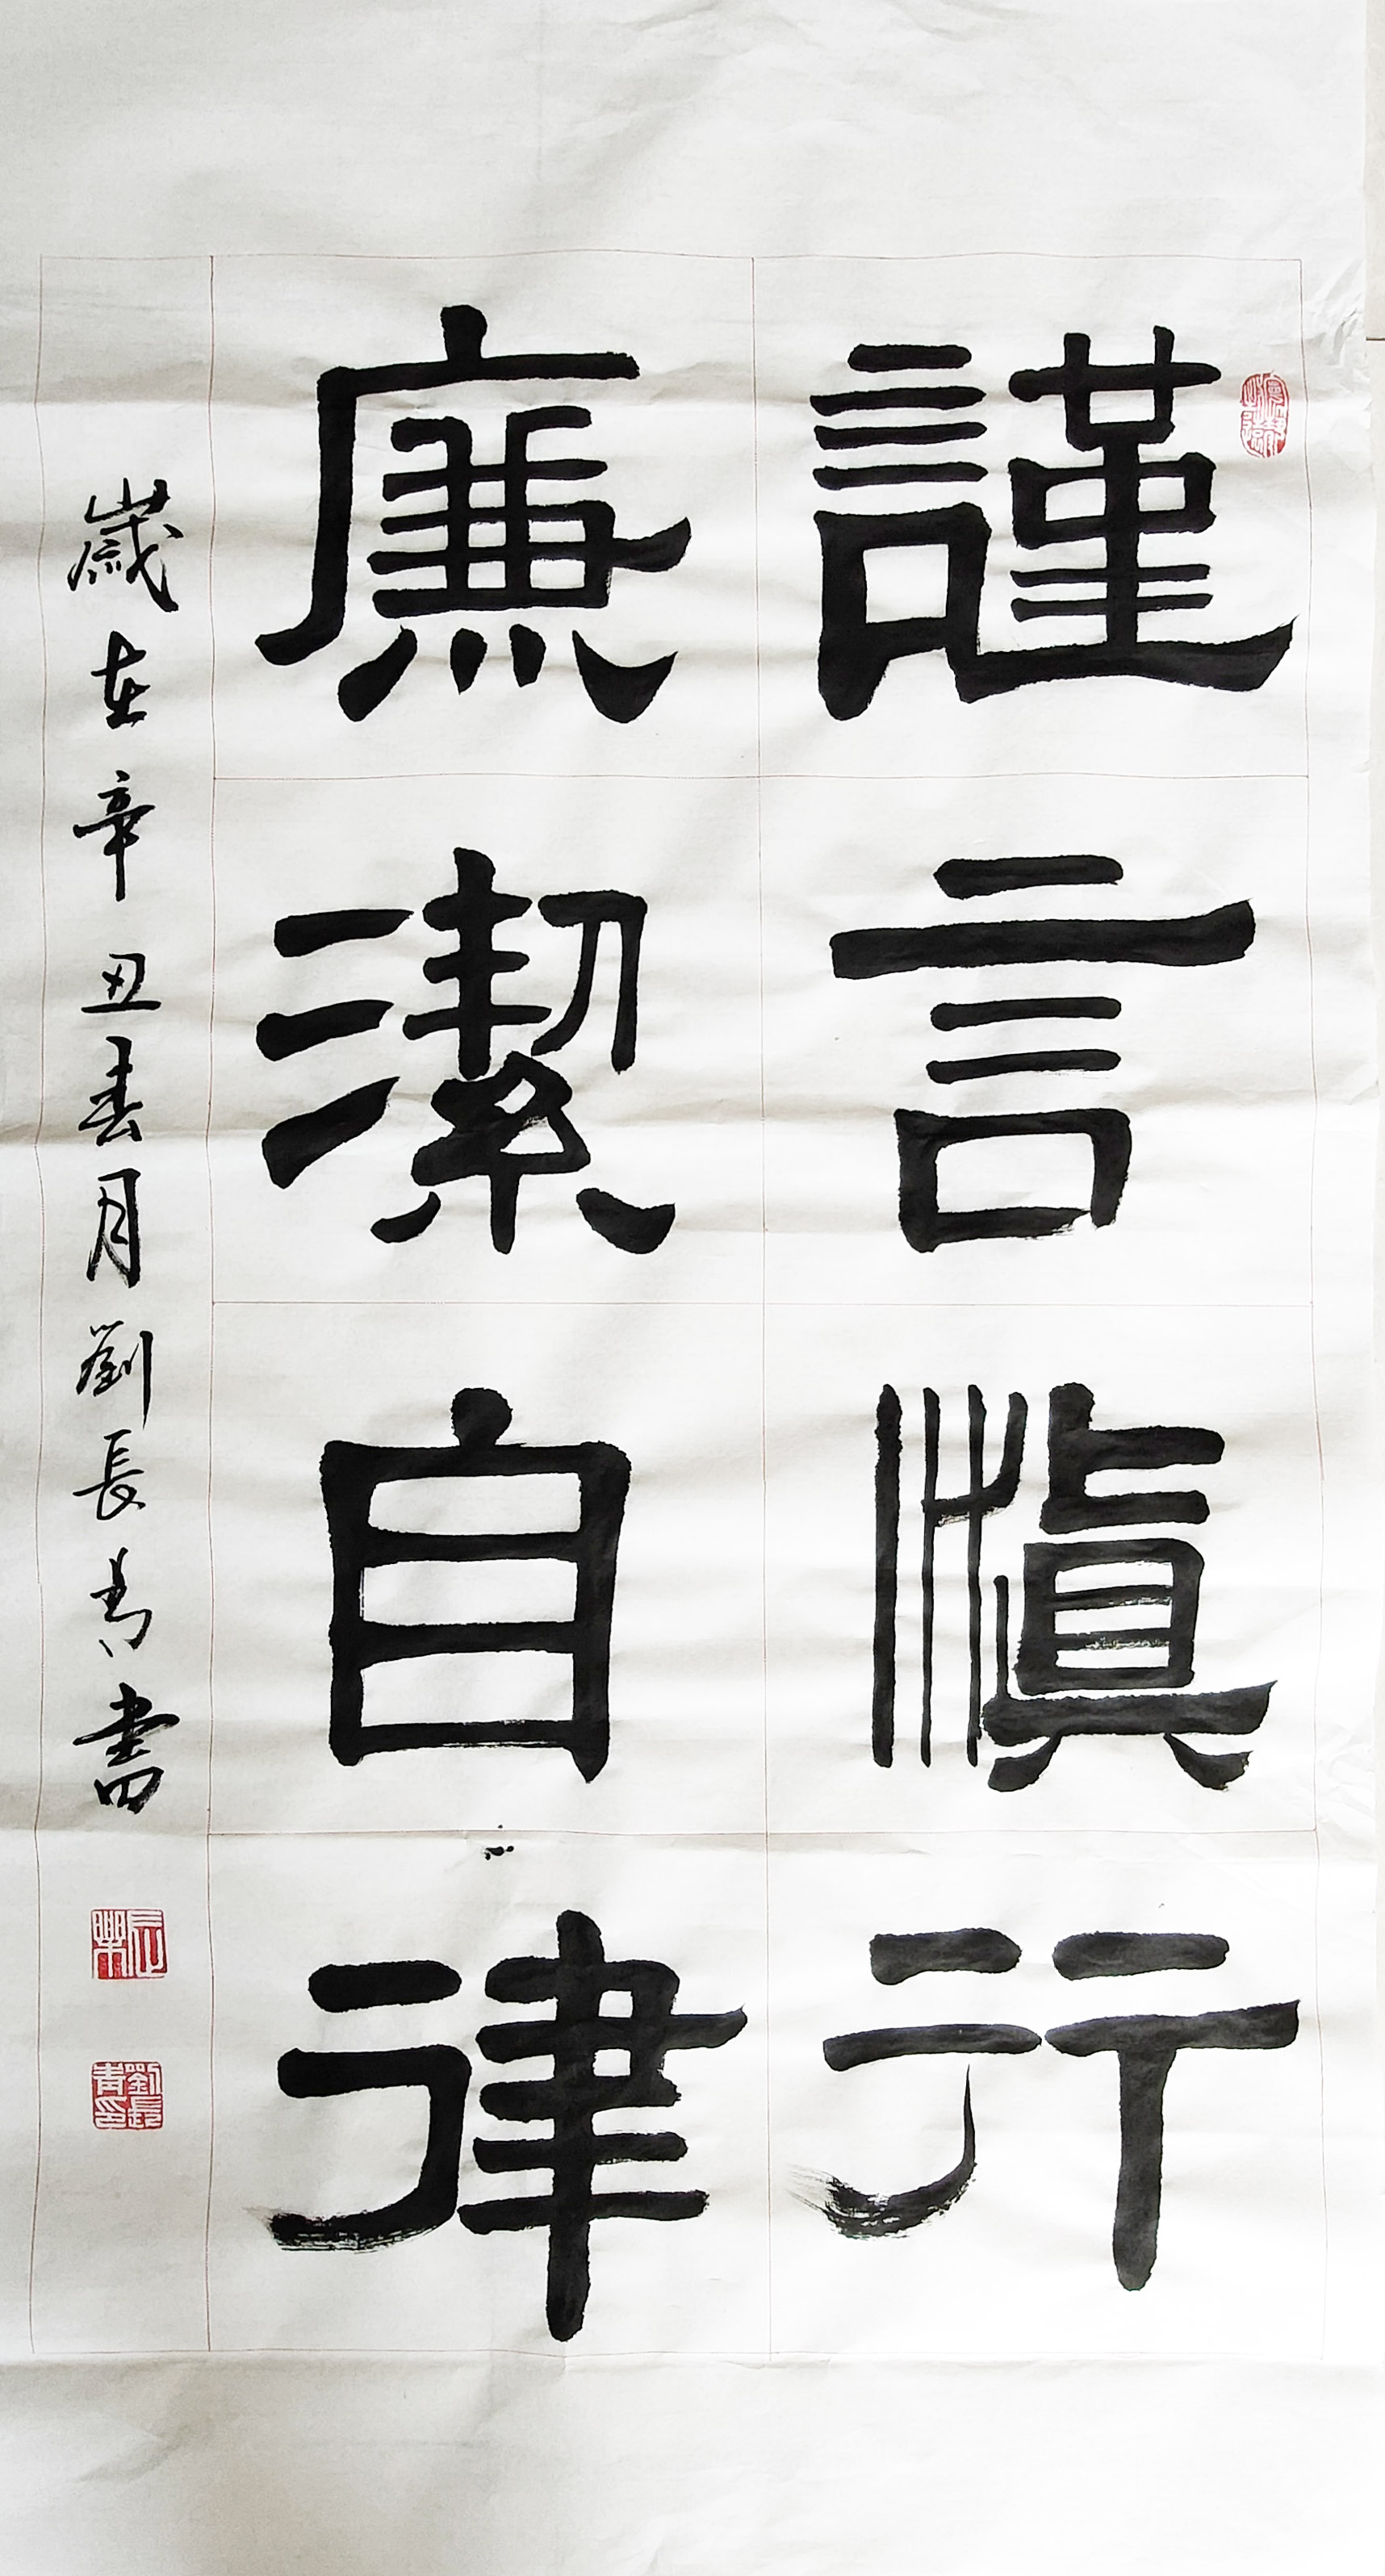 謹言慎行
廉潔自律
歲在辛丑春月劉長青書
劉長青印